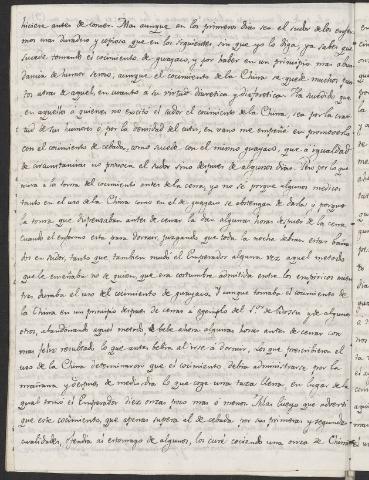 hiciere antes de comer. Mas aunque en los primeros dias sea el sudor de los enfer-
mos mas duradero y copioso que en los siguientes sin que yo lo diga, ya sabes que
sucede tomando el cocimiento de guayaco, y por haber en un principio mas abun-
dancia de humor seroso, aunque el cocimiento de la China se quede muchos pun-
tos atras de aquel, en cuanto a su virtud diuretica y diaforetica. Ha sucedido que
en aquellos a quienes no excitó el sudor el cocimiento de la China, sea por la cra-
situd de los humores o por la densidad del cutis, en vano me empeñé en promoverlo
con el cocimiento de cebada, como sucede con el mismo guayaco, que a igualdad
de circunstancias no promueve el sudor sino despues de algunos dias. Pero por lo que
mira a la toma del cocimiento antes de la cena, yo no se porque algunos medicos
tanto en el uso de la China como en el de guayaco se abstengan de darla y porque
la toma que dispensaban antes de cenar la dan algunas horas despues de la cena
cuando el enfermo esta para dormir, juzgando que toda la noche deben estar baña-
dos en sudor, tanto que tambien mudó el Emperador alguna vez aquel metodo
que le enseñaba no se quien, que era costumbre admitida entre los empiricos
daba el uso del cocimiento de guayaco. Y aunque tomaba el cocimiento de
la China en un principio despues de cenar a ejemplo del y de algunos
otros, abandonando aquel metodo le bebe ahora algunas horas antes de cenar con
mas feliz resultado lo que antes bebia al irse a dormir. Los que prescribieron el
uso de la China determinaron que el cocimiento debia administrarse por la
mañana y despues de mediodia lo que coge una taza llena, en lugar de la
qual tomó el Emperador diez onzas poco mas o menos. Mas luego que adverti
que este cocimiento, que apenas supera al de cebada por sus primeras y segundas
cualidades, ofendia al estomago de algunos, los curé cociendo una onza de China